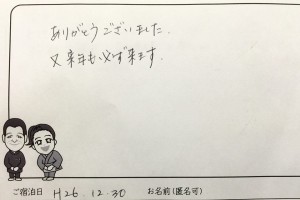 ありがとうございました.
又来年も必ず来ます.
ご宿泊日 H26.12.30 お名前(匿名可)